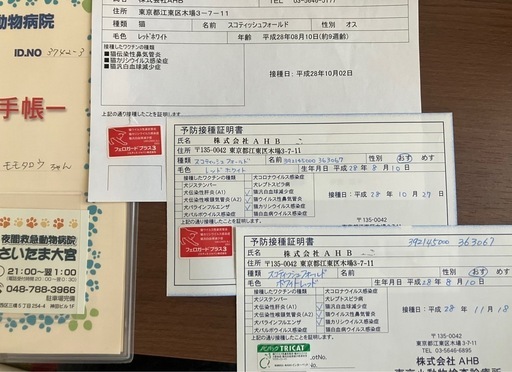 動物病院
ID.NO 3742-3
手帳
モモタロウ ちゃん
夜間救急動物病院
さいたま大宮
21:00～翌1:00
048-788-3966
西区三橋5丁目254-4 神田ビル1F
駐車場完備
株式会社AHB
03-5646-1177
住所 東京都江東区木場3-7-11
種類 猫 スコティッシュフォールド 性別 オス
毛色 レッドホワイト 生年月日 平成28年08月10日(約9週齢)
接種したワクチンの種類
■猫伝染性鼻気管炎
■猫カリシウイルス感染症
■猫汎白血球減少症
接種日:平成28年10月02日
上記の通り接種したことを証明します。
フェロガードプラス3
予防接種証明書
氏名 株式会社AHB
住所 〒135-0042 東京都江東区木場3-7-11
種類 スコティッシュフォールド 392145000363067 性別 おす めす
毛色 レッドホワイト 生年月日 平成 28年 8月 10日
接種したワクチンの種類
犬ジステンパー
犬伝染性肝炎(A1)
犬伝染性喉頭気管炎(A2)
犬パラインフルエンザ
犬パルボウイルス感染症
犬コロナウイルス感染症
犬レプトスピラ病
猫汎白血球減少症
猫ウイルス性鼻気管炎
猫カリシウイルス感染症
猫白血病ウイルス感染症
接種日 平成 28年 10月 27日
上記の通り接種したことを証明します。
〒135-0042
東京都江東区
フェロガードプラス3
予防接種証明書 392145000 363067
氏名 株式会社AHB
住所 〒135-0042 東京都江東区木場3-7-11
種類 スコティッシュフォールド 性別 おす めす
毛色 ホワイトレッド 生年月日 平成 28年 8月 10日
接種したワクチンの種類
犬ジステンパー
犬伝染性肝炎(A1)
犬伝染性喉頭気管炎(A2)
犬パラインフルエンザ
犬パルボウイルス感染症
犬コロナウイルス感染症
犬レプトスピラ病
猫汎白血球減少症
猫ウイルス性鼻気管炎
猫カリシウイルス感染症
猫白血病ウイルス感染症
接種日 平成 28年 11月 18日
上記の通り接種したことを証明します。
ノビバック TRICAT
Lot No.
〒135-0042
東京都江東区木場3-7-11
TEL 03-5646-6895
株式会社 AHB
東京小動物検査診療所